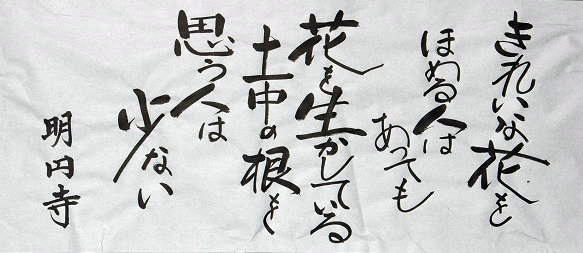 きれいな花を
ほめる人は
あっても
花を生かしている
土中の根を
思う人は
少ない
明円寺